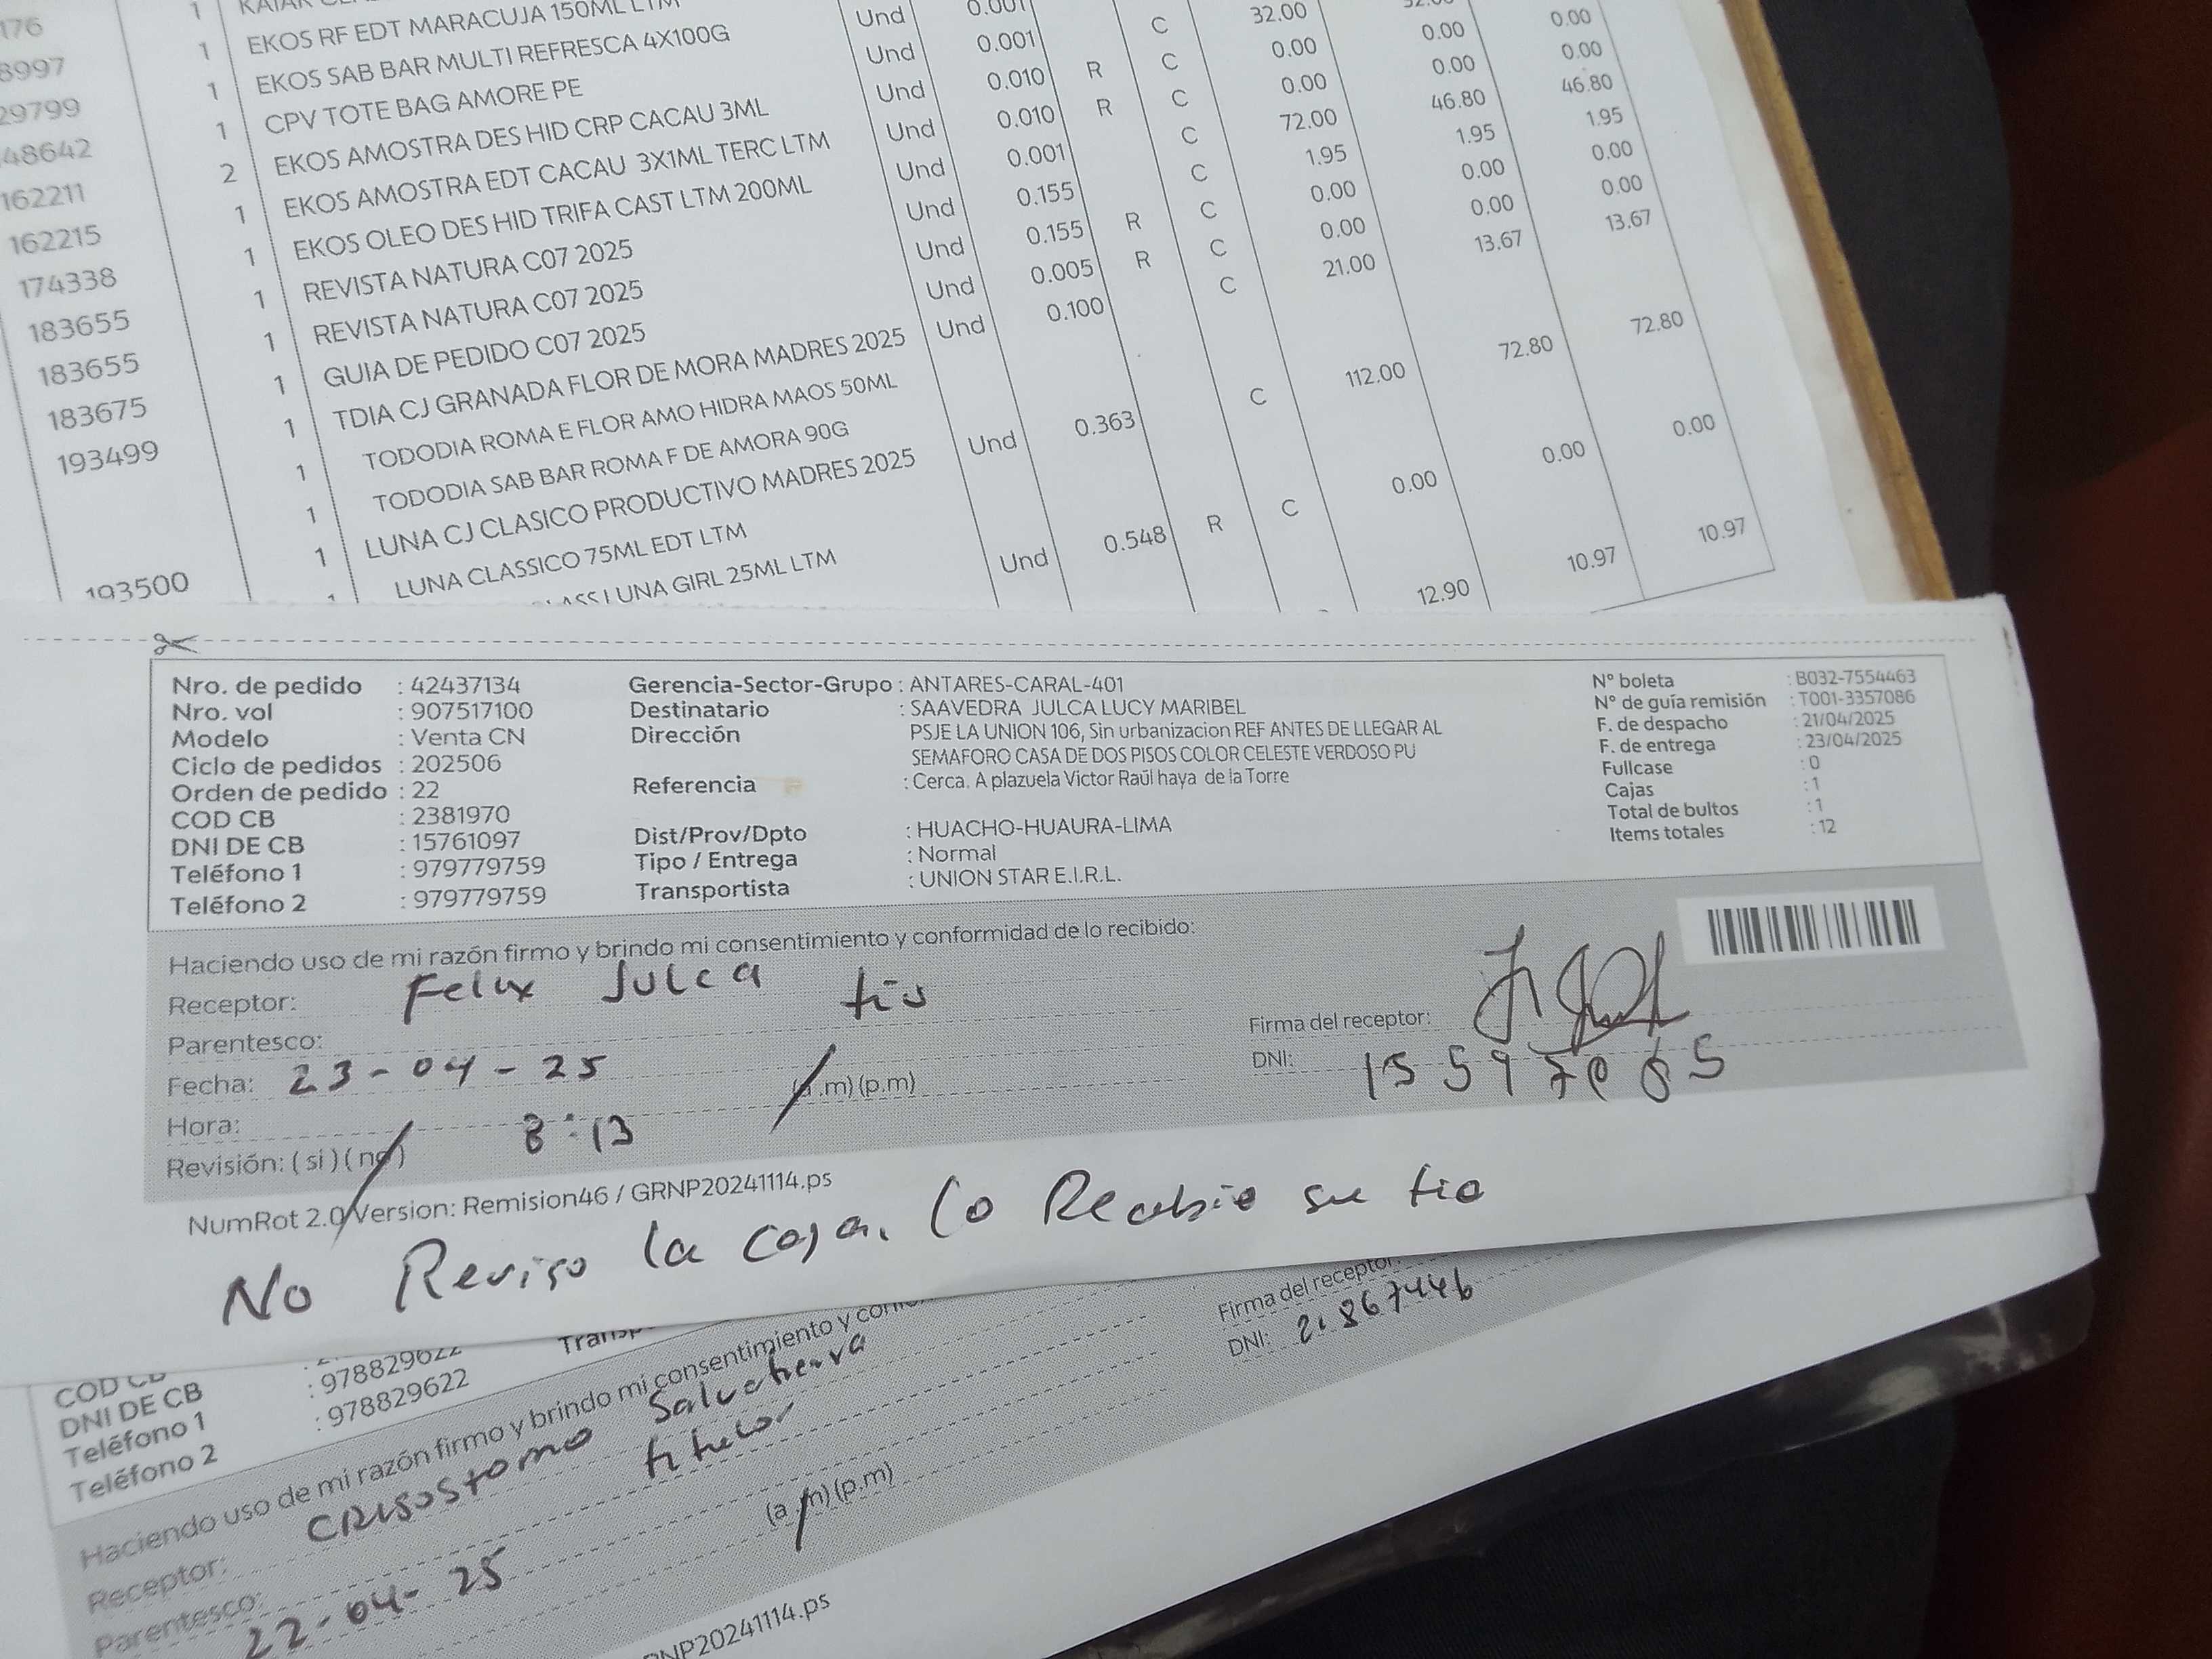 176 1
8997 1 EKOS RF EDT MARACUJA 150ML LTM Und 0.001 C 32.00
29799 1 EKOS SAB BAR MULTI REFRESCA 4X100G Und 0.001 C 0.00 0.00 0.00
48642 1 CPV TOTE BAG AMORE PE Und 0.010 R C 0.00 0.00 0.00
162211 2 EKOS AMOSTRA DES HID CRP CACAU 3ML Und 0.010 R C 72.00 46.80 46.80
162215 1 EKOS AMOSTRA EDT CACAU 3X1ML TERC LTM Und 0.001 C 1.95 1.95 1.95
174338 1 EKOS OLEO DES HID TRIFA CAST LTM 200ML Und 0.155 C 0.00 0.00 0.00
183655 1 REVISTA NATURA C07 2025 Und 0.155 R C 0.00 0.00 0.00
183655 1 REVISTA NATURA C07 2025 Und 0.005 R C 21.00 13.67 13.67
183675 1 GUIA DE PEDIDO C07 2025 Und 0.100
193499 1 TDIA CJ GRANADA FLOR DE MORA MADRES 2025 C 112.00 72.80 72.80
1 TODODIA ROMA E FLOR AMO HIDRA MAOS 50ML
1 TODODIA SAB BAR ROMA F DE AMORA 90G Und 0.363
193500 1 LUNA CJ CLASICO PRODUCTIVO MADRES 2025 R C 0.00 0.00 0.00
LUNA CLASSICO 75ML EDT LTM
LUNA GIRL 25ML LTM Und 0.548 12.90 10.97 10.97
Nro. de pedido : 42437134 Gerencia-Sector-Grupo : ANTARES-CARAL-401 N° boleta : B032-7554463
Nro. vol : 907517100 Destinatario : SAAVEDRA JULCA LUCY MARIBEL N° de guía remisión : T001-3357086
Modelo : Venta CN Dirección PSJE LA UNION 106, Sin urbanizacion REF ANTES DE LLEGAR AL F. de despacho : 21/04/2025
Ciclo de pedidos : 202506 SEMAFORO CASA DE DOS PISOS COLOR CELESTE VERDOSO PU F. de entrega : 23/04/2025
Orden de pedido : 22 Referencia : Cerca. A plazuela Victor Raúl haya de la Torre Fullcase : 0
COD CB : 2381970 Cajas : 1
DNI DE CB : 15761097 Dist/Prov/Dpto : HUACHO-HUAURA-LIMA Total de bultos : 1
Teléfono 1 : 979779759 Tipo / Entrega : Normal Items totales : 12
Teléfono 2 : 979779759 Transportista : UNION STAR E.I.R.L.
Haciendo uso de mi razón firmo y brindo mi consentimiento y conformidad de lo recibido:
Receptor: Felix Julca
Parentesco: tio Firma del receptor:
Fecha: 23-04-25 (a.m) (p.m) DNI:
Hora: 8:13
Revisión: ( si ) ( no )
NumRot 2.0 Version: Remision46 / GRNP20241114.ps
No Reviso la caja. Lo Recibio su tio
COD CB
DNI DE CB
Teléfono 1 : 978829622
Teléfono 2 : 978829622
Haciendo uso de mi razón firmo y brindo mi consentimiento y
Receptor: CRISOSTOMO Salvatierra Firma del receptor:
Parentesco: titular DNI: 21867446
22-04-25 (a.m) (p.m)
RNP20241114.ps